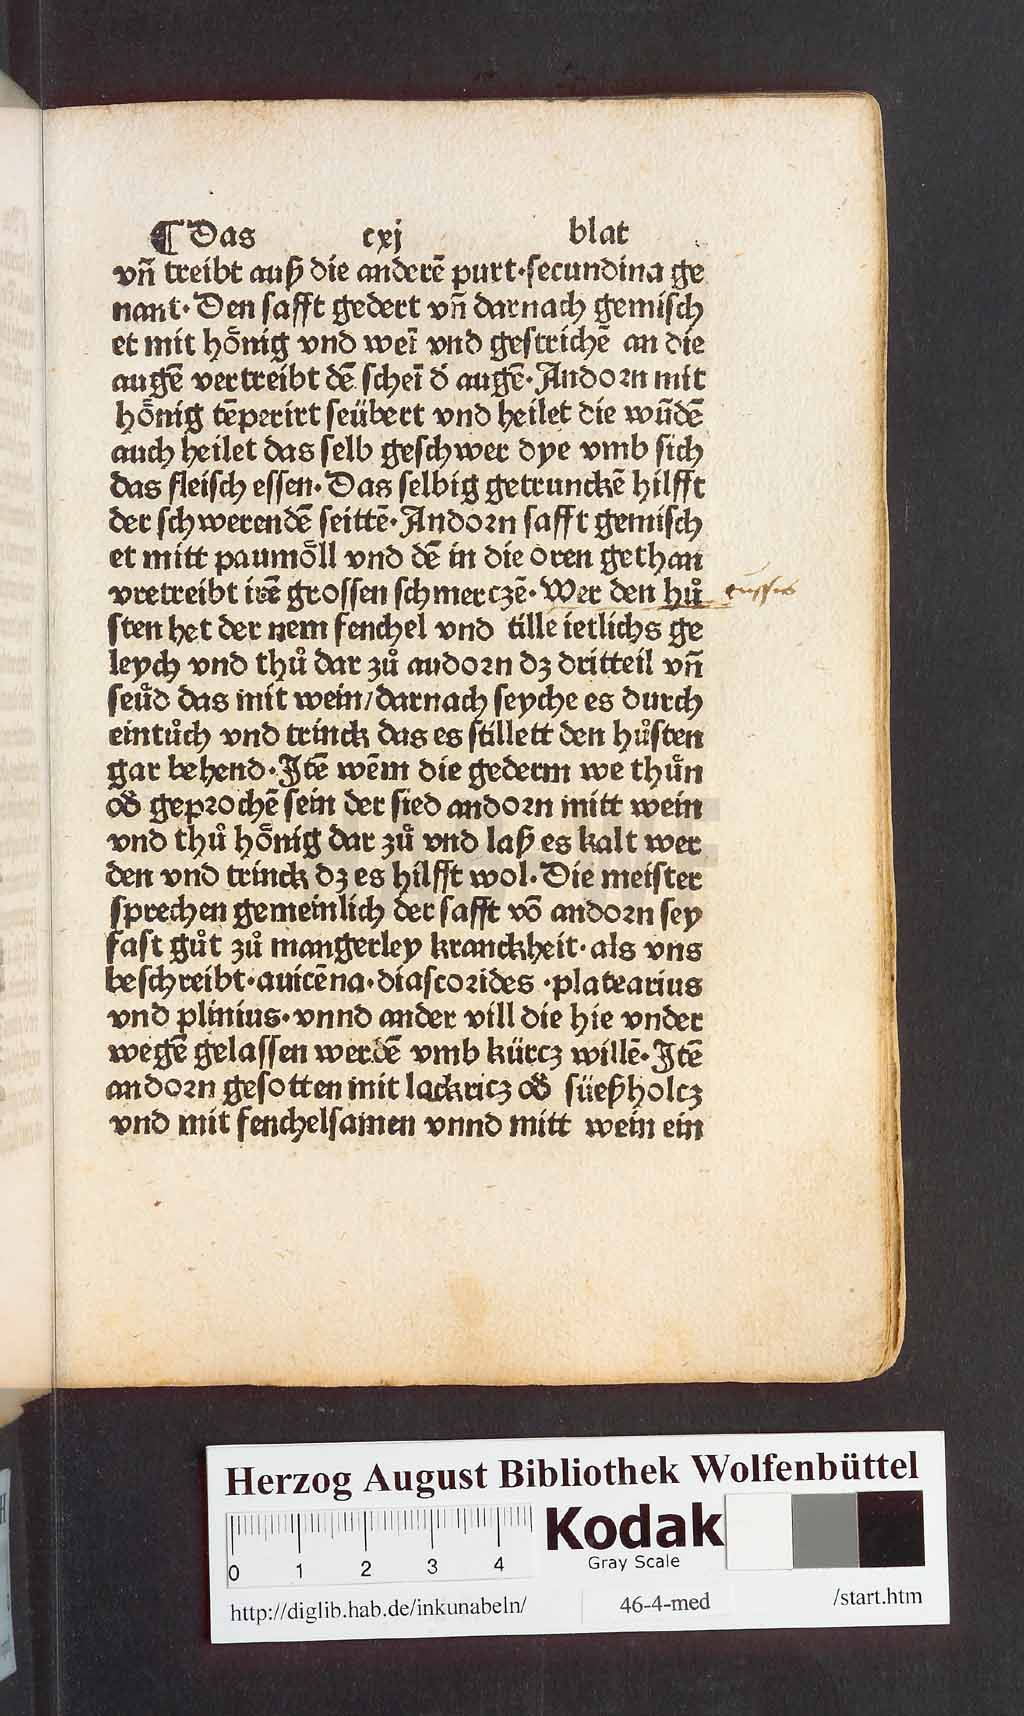 ¶ Das cxj blat
vn̄ treibt auß die anderē purt·secundina ge
nant· Den safft gedert vn̄ darnach gemisch
et mit hoͤnig vnd weī vnd gestrichē an die
augē vertreibt dē scheī d̄ augē· Andorn mit
hoͤnig tēperirt seübert vnd heilet die wūdē
auch heilet das selb geschwer dye vmb sich
das fleisch essen· Das selbig getrunckē hilfft
der schwerendē seittē· Andorn safft gemisch
et mitt paumoͤll vnd dē in die oren gethan
vretreibt irē grossen schmerczē· Wer den huͦ
sten het der nem fenchel vnd tille ietlichs ge
leych vnd thuͦ dar zuͦ andorn dz dritteil vn̄
seuͦd das mit wein/darnach seyche es durch
eintuͦch vnd trinck das es stillett den huͦsten
gar behend· Itē wēm die gederm we thuͦn
od̄ geprochē sein der sied andorn mitt wein
vnd thuͦ hoͤnig dar zuͦ vnd laß es kalt wer
den vnd trinck dz es hilfft wol· Die meister
sprechen gemeinlich der safft vō andorn sey
fast guͦt zuͦ mangerley kranckheit· als vns
beschreibt·auicēna·diascorides ·platearius
vnd plinius·vnnd ander vill die hie vnder
wegē gelassen werdē vmb kürcz willē· Itē
andorn gesotten mit lackricz od̄ süeßholcz
vnd mit fenchelsamen vnnd mitt wein ein
Herzog August Bibliothek Wolfenbüttel
0 1 2 3 4
Kodak
Gray Scale
http://diglib.hab.de/inkunabeln/
46-4-med
/start.htm